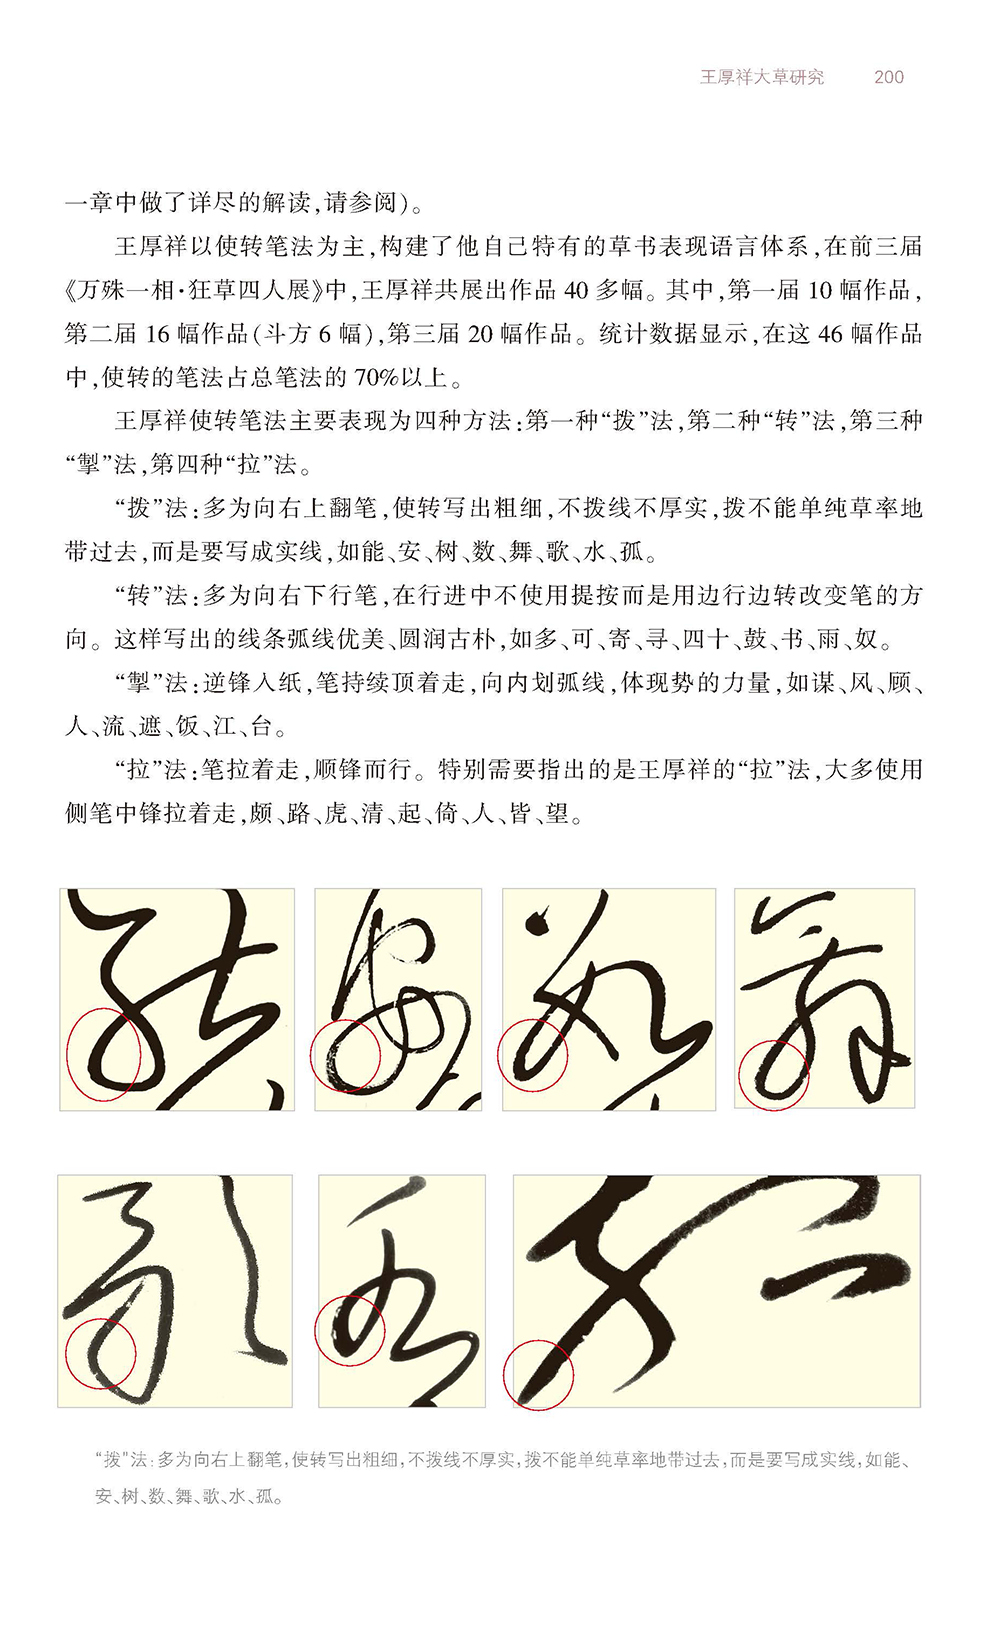 王厚祥大草研究 200
一章中做了详尽的解读,请参阅)。
王厚祥以使转笔法为主,构建了他自己特有的草书表现语言体系,在前三届
《万殊一相·狂草四人展》中,王厚祥共展出作品 40 多幅。其中,第一届 10 幅作品,
第二届 16 幅作品(斗方 6 幅),第三届 20 幅作品。统计数据显示,在这 46 幅作品
中,使转的笔法占总笔法的 70%以上。
王厚祥使转笔法主要表现为四种方法:第一种“拨”法,第二种“转”法,第三种
“掣”法,第四种“拉”法。
“拨”法:多为向右上翻笔,使转写出粗细,不拨线不厚实,拨不能单纯草率地
带过去,而是要写成实线,如能、安、树、数、舞、歌、水、孤。
“转”法:多为向右下行笔,在行进中不使用提按而是用边行边转改变笔的方
向。这样写出的线条弧线优美、圆润古朴,如多、可、寄、寻、四十、鼓、书、雨、奴。
“掣”法:逆锋入纸,笔持续顶着走,向内划弧线,体现势的力量,如谋、风、顾、
人、流、遮、饭、江、台。
“拉”法:笔拉着走,顺锋而行。特别需要指出的是王厚祥的“拉”法,大多使用
侧笔中锋拉着走,颇、路、虎、清、起、倚、人、皆、望。
“拨”法:多为向右上翻笔,使转写出粗细,不拨线不厚实,拨不能单纯草率地带过去,而是要写成实线,如能、
安、树、数、舞、歌、水、孤。